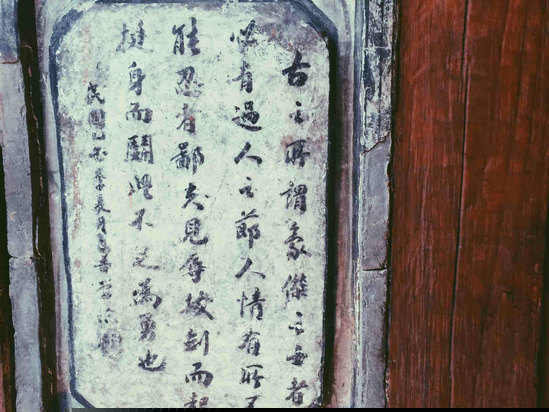 古之所謂豪傑之士者
必有過人之節人情有所不
能忍者鄙夫見辱拔劍而起
挺身而鬪此不足為勇也
民國季夏月